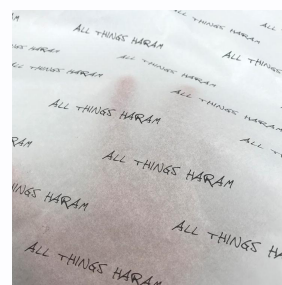 ALL THINGS HARAM
ALL THINGS HARAM
ALL
ALL THINGS
ALL THINGS HARAM
THINGS HARAM
ALL THINGS HARAM
ALL THINGS HARAM
ALL THINGS HARAM
ALL
ALL THINGS HARAM
THINGS HARAM
ALL THINGS
ALL THINGS HARAM